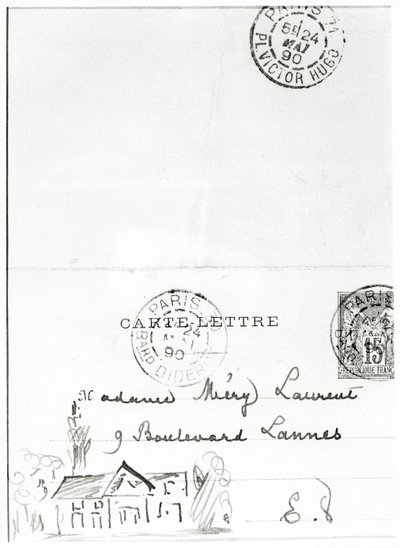 PARIS 71
5E 24
MAI
90
PL. VICTOR HUGO
CARTE-LETTRE
PARIS
24
90
BARD DIDEROT
PARIS
15
RÉPUBLIQUE FRANC
Madame Méry Laurent
9 Boulevard Lannes
E.V